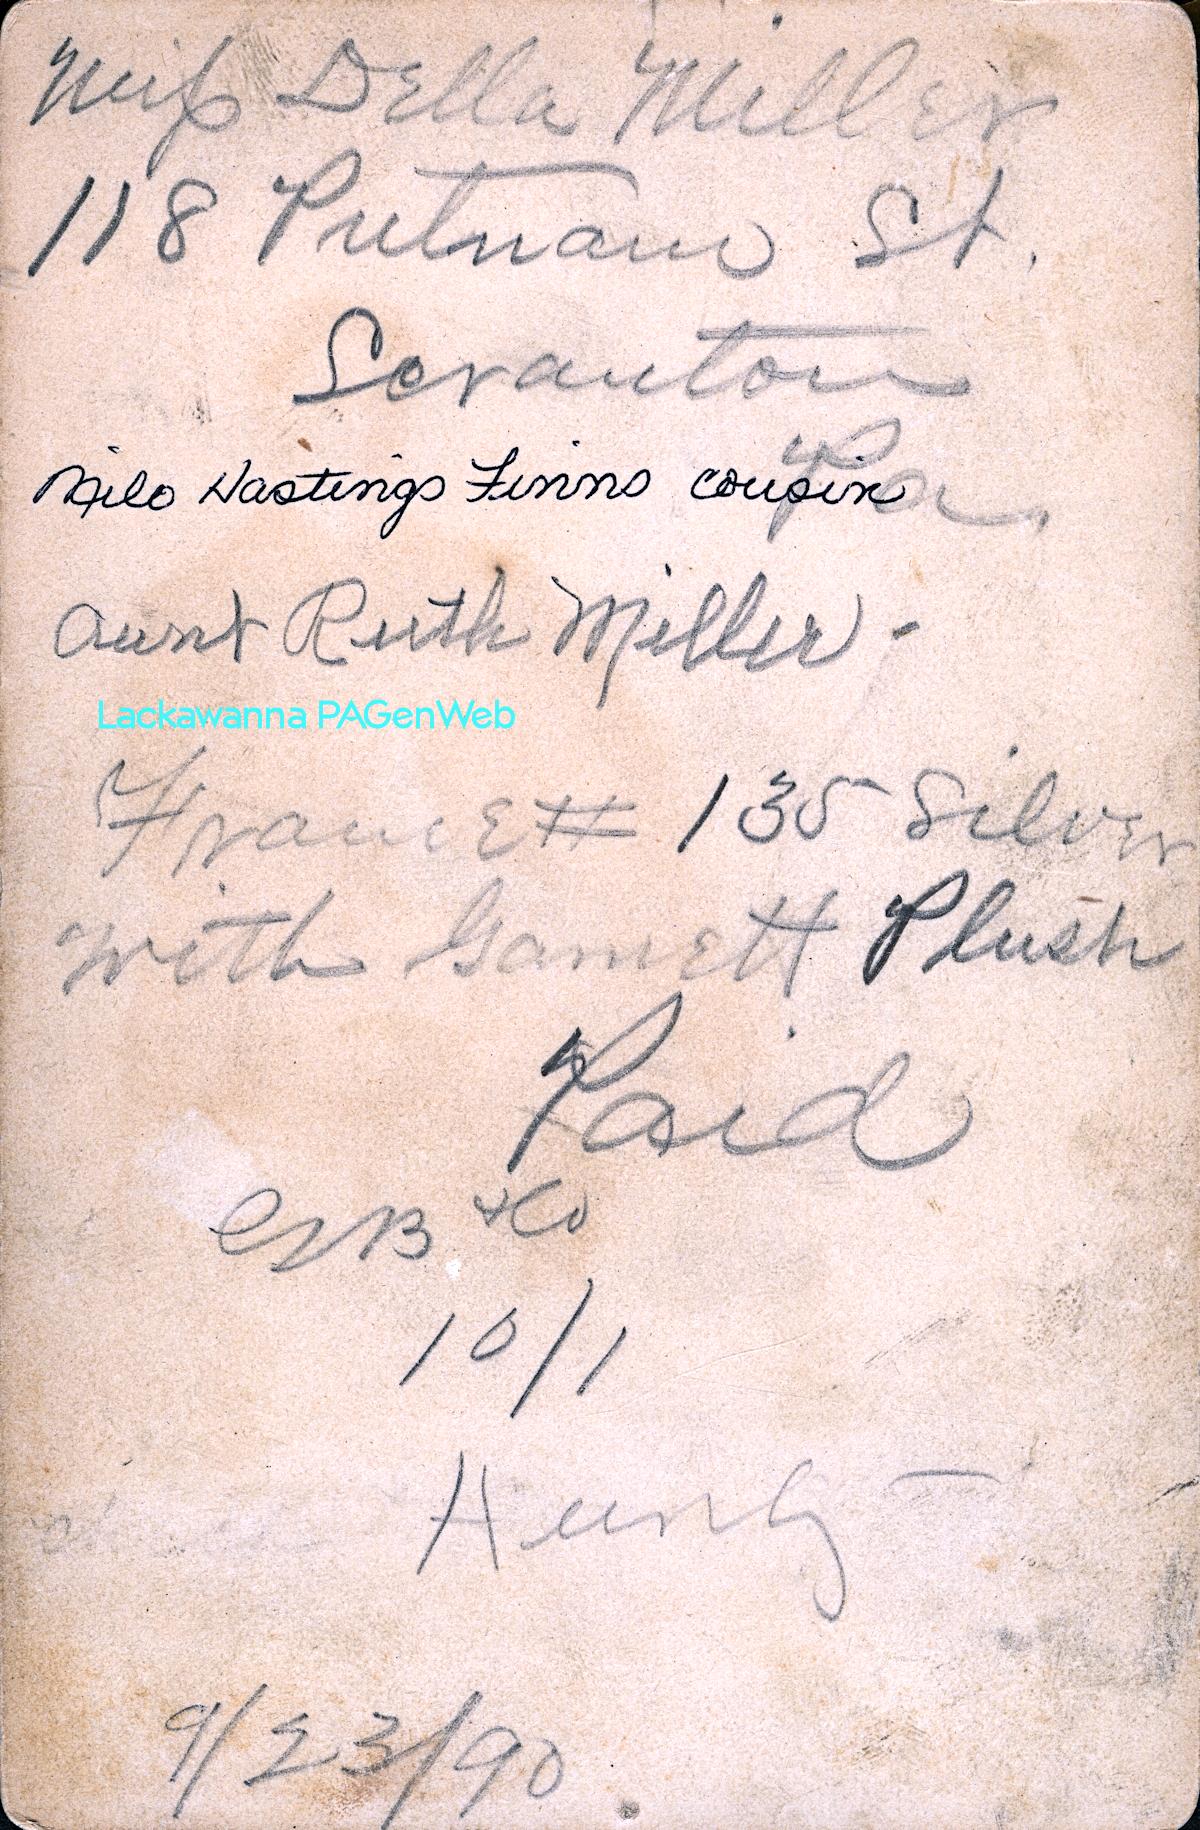 Miss Della Miller
118 Putnam St.
Scranton
Pa.
Milo Hastings Finns cousin
Aunt Ruth Miller -
Lackawanna PAGenWeb
Frame # 135 Silver
with Garnett Plush
Paid
+ Co
10/1
9/23/90